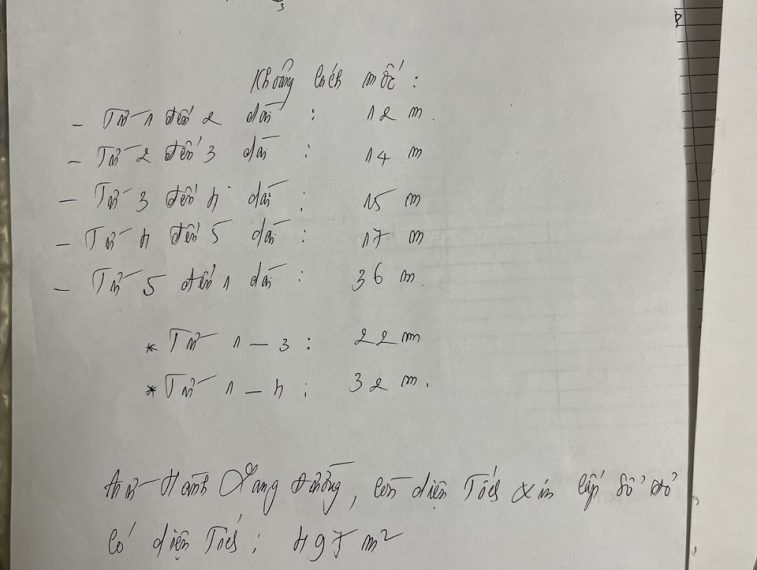 Khoảng cách mốc:
- Từ 1 đến 2 dài: 12 m.
- Từ 2 đến 3 dài: 14 m
- Từ 3 đến 4 dài: 15 m
- Từ 4 đến 5 dài: 17 m
- Từ 5 đến 1 dài: 36 m.
* Từ 1 - 3: 22 m
* Từ 1 - 4: 32 m.
Trừ Hành Lang đường, còn diện Tích xin cấp sổ đỏ
có diện Tích: 497 m²